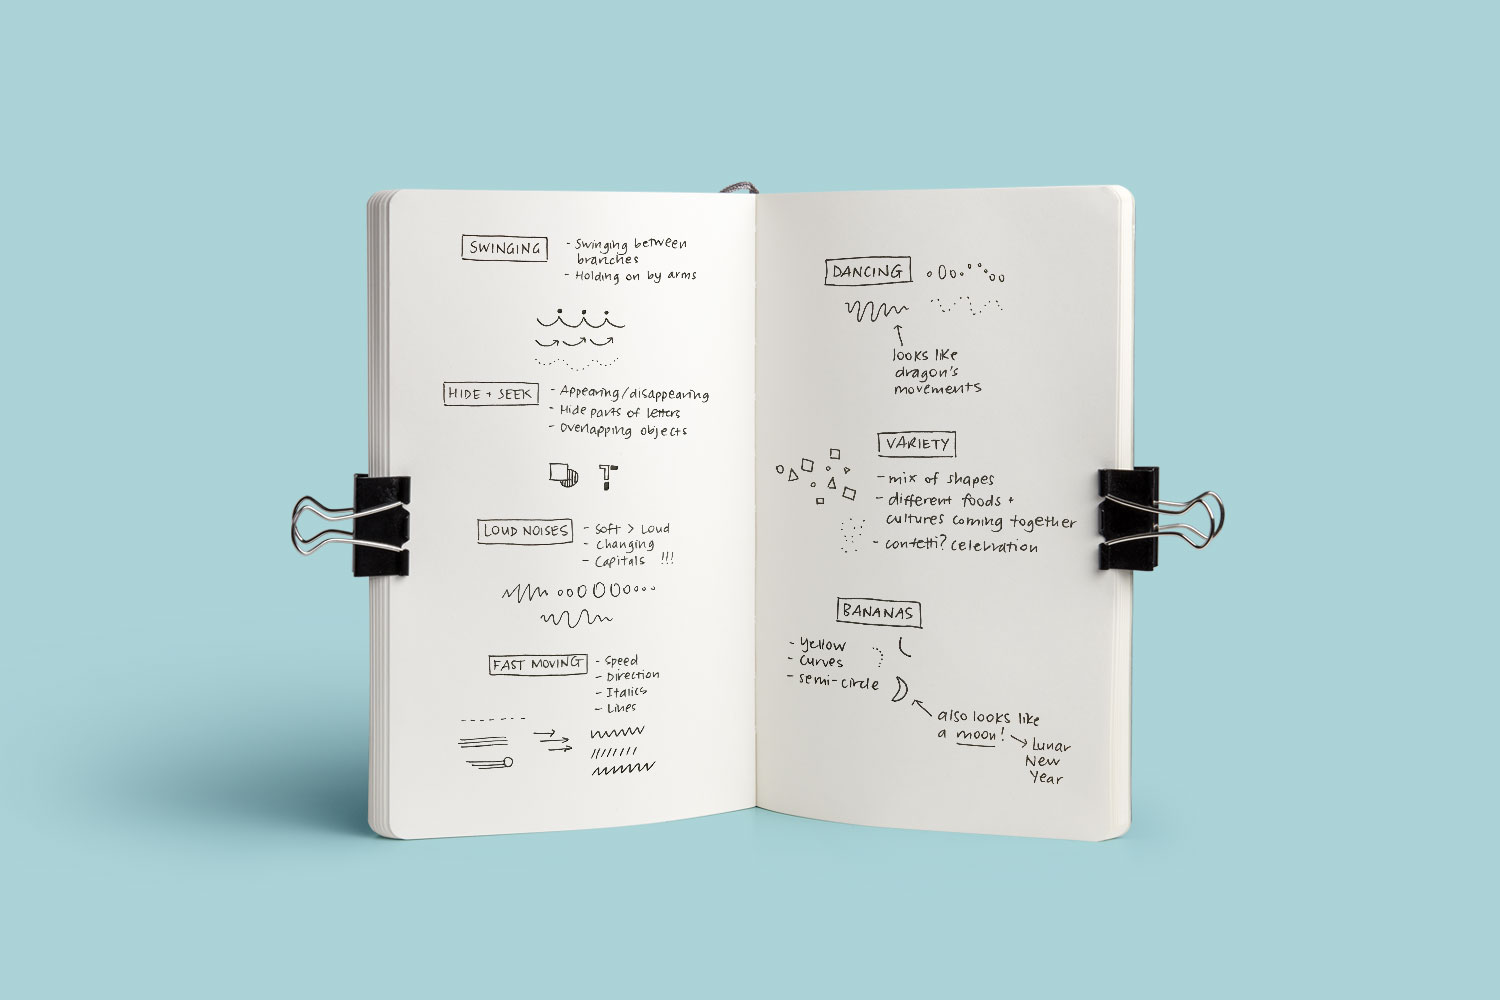 SWINGING
- Swinging between
branches
- Holding on by arms
HIDE + SEEK
- Appearing/disappearing
- Hide parts of letters
- Overlapping objects
T
LOUD NOISES
- Soft > Loud
- Changing
- Capitals !!!
FAST MOVING
- Speed
- Direction
- Italics
- Lines
DANCING
looks like
dragon's
movements
VARIETY
- mix of shapes
- different foods +
cultures coming together
- confetti? celebration
BANANAS
- Yellow
- Curves
- semi-circle
also looks like
a moon!
Lunar
New
Year